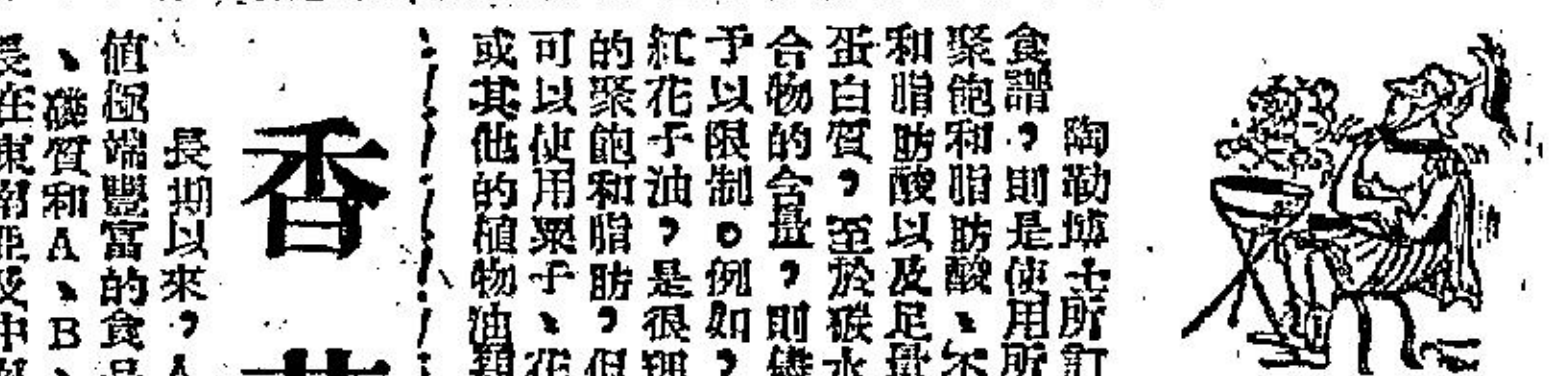 陶勒博士所訂
食譜，則是使用所
聚飽和脂肪酸、不
和脂肪酸以及足量
蛋白質，至於碳水
合物的含量，則儘
予以限制。例如，
紅花子油，是很理
的聚飽和脂肪，但
可以使用粟子、花
或其他的植物油類
香
長期以來，人
值極端豐富的食品
、礦質和A、B、
長在東南亞及中